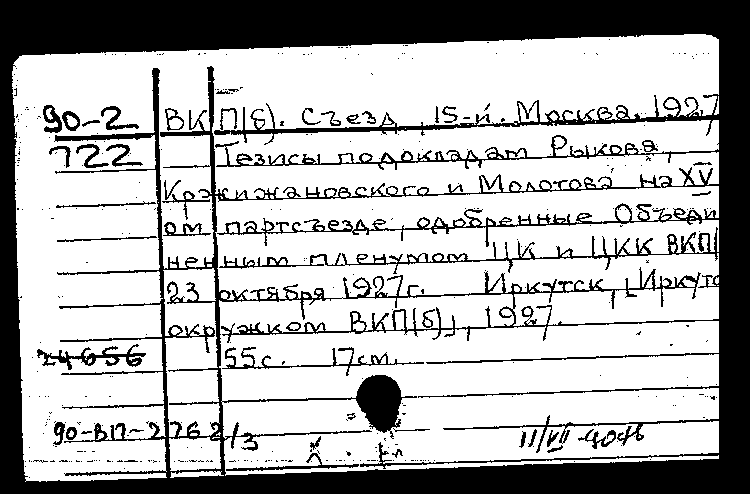 90-2 ВКП(б). Съезд, 15-й. Москва. 1927
722 Тезисы подокладам Рыкова,
Кржижановского и Молотова на XV
ом партсъезде, одобренные Объеди
ненным пленумом ЦК и ЦКК ВКП(
23 октября 1927г. Иркутск, [Иркутс
окружком ВКП(б)], 1927.
24656 55с. 17см.
90-ВП-2762/3